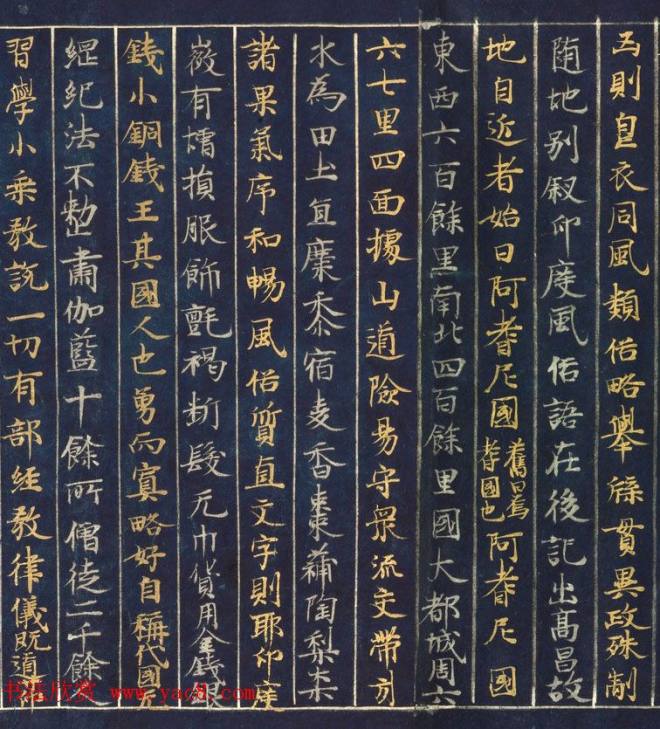 而則自衣同風類俗略舉條貫異政殊制
随地別叙印度風俗語在後記出髙昌故
地自近者始曰阿耆尼國舊曰焉耆國也阿耆尼國
東西六百餘里南北四百餘里國大都城周六
六七里四面據山道險易守衆流交帶引
水為田土宜穈黍宿麦香棗蒱陶梨柰
諸果氣序和暢風俗質直文字則耶印度
㣲有増損服飾氈褐断髮无巾貨用金錢銀
錢小銅錢王其國人也勇而寡略好自稱代國无
綱紀法不整肅伽藍十餘所僧徒二千餘人
習學小乗教說一切有部経教律儀既遵
书乐欣赏 www.yac8.com